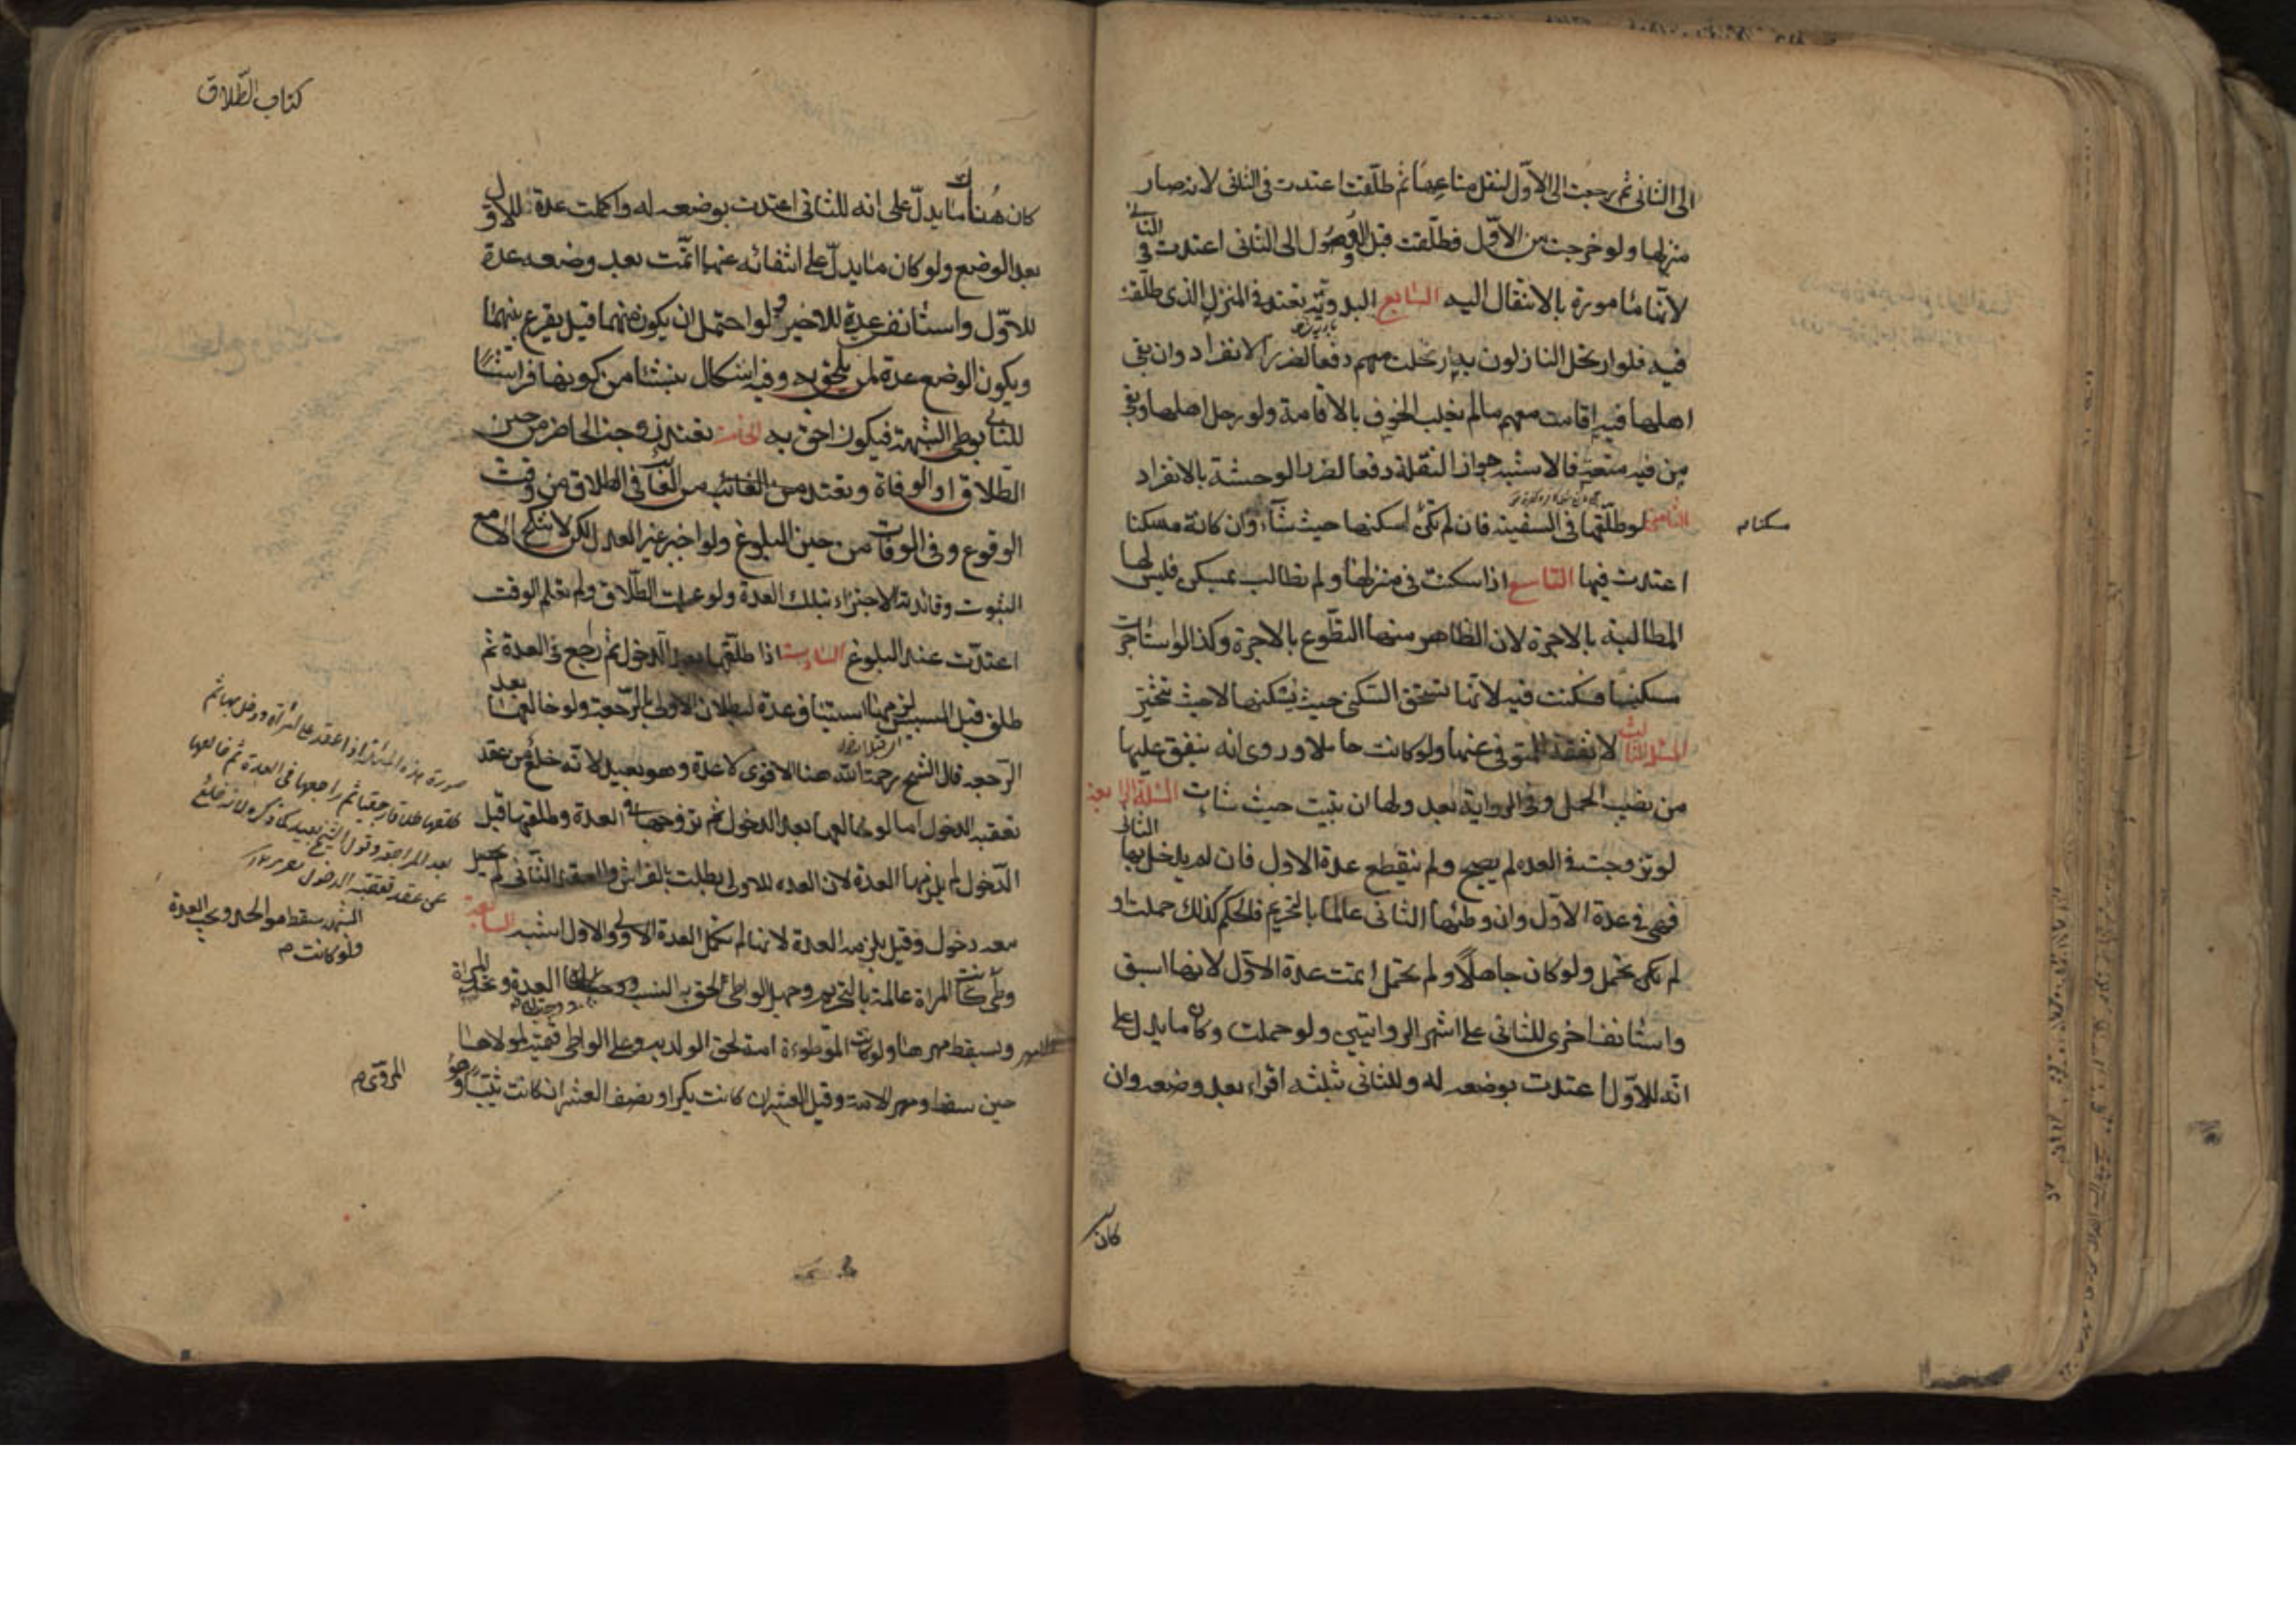 الى الثانى ثم رجعت الى الاوّل لنقل متاعها ثم طلّقت اعتدت فى الثانى لانه صار
منزلها ولو خرجت من الاوّل فطلّقت قبل الوصول الى الثانى اعتدت فى الثانى
لانها مامورة بالانتقال اليه السابع البدويّة تعتد فى المنزل الذى طلّقت
فيه فلو ارتحل النازلون به ارتحلت معهم دفعا لضرر الانفراد وان بقى
اهلها فيه اقامت معهم ما لم يغلب الخوف بالاقامة ولو رحل اهلها وبقى
من فيه منعة فالاشبه جواز النقلة دفعا لضرر الوحشة بالانفراد
الثامن لو طلّقها فى السفينة فان لم تكن اسكنها حيث شاء وان كانت مسكنا
مسكنا م
اعتدت فيها التاسع اذا سكنت فى منزلها ولم تطالب بمسكن فليس لها
المطالبة بالاجرة لان الظاهر منها التطوع بالاجرة وكذا لو استاجرت
مسكنا فسكنت فيه لانها تستحق السكنى حيث يسكنها لا حيث تتخير
المسئلة الثالث لا نفقة للمتوفى عنها ولو كانت حاملا وروى انه ينفق عليها
من نصيب الحمل وفى الرواية بعد ولها ان تبيت حيث شاءت المسئلة الرابعة
لو تزوجت فى العده لم يصح ولم تنقطع عدة الاول فان لم يدخل بها الثانى
فهى فى عدة الاوّل وان وطئها الثانى عالما بالتحريم فالحكم كذلك حملت او
لم تكن تحمل ولو كان جاهلاً ولم تحمل اتمت عدة الاوّل لانها اسبق
واستانفت اخرى للثانى على اشهر الروايتين ولو حملت وكان ما يدل على
انّه للاوّل اعتدت بوضعه له وللثانى ثلثة اقراء بعد وضعه وان
كان
كتاب الطّلاق
كان هناك ما يدلّ على انه للثانى اعتدت بوضعه له واكملت عدة للاول
بعد الوضع ولو كان ما يدلّ على انتفائه عنهما اتمّت بعد وضعه عدة
للاوّل واستانفت عدة للاخير ولو احتمل ان يكون منهما قيل يقرع بينهما
ويكون الوضع عدة لمن يلحق به وفيه اشكال ينشأ من كونها فراشا
للثانى بوطى الشبهة فيكون احق به الخامسة تعتد زوجة الحاضر من حين
الطّلاق او الوفاة وتعتد من الغائب فى الطلاق من وقت
الوقوع وفى الوفات من حين البلوغ ولو اخبر غير العدل لكن لا تنكح الا مع
الثبوت وفائدته الاجتزاء بتلك العدة ولو علمت الطّلاق ولم تعلم الوقت
اعتدّت عند البلوغ السادسة اذا طلّقها بعد الدّخول ثم راجع فى العدة ثم
طلق قبل المسيس لزمها استيناف عدة لبطلان الاولى بالرّجعة ولو خالعها بعد
الرّجعه قال الشيخ رحمة الله هنا الاقوى لا عدة وهو بعيد لانّه خلع من عقد
تعقبه الدخول اما لو خالعها بعد الدخول ثم تزوجها فى العدة وطلقها قبل
الدّخول لم يلزمها العدة لان العده للاولى بطلت بالفراش والعقد الثانى لم يحصل
معه دخول وقيل يلزمه العدة لانها لم تكمل العدة الاولى والاول اشبه السابعة
وطى المراة عالمة بالتحريم وجهل الواطى لحق به النسب ووجبت له العدة وتحد المراة
ويسقط مهرها ولو كانت الموطوءة امة لحق الولد به وعلى الواطى قيمته لمولاها
حين سقط ومهر الامة وقيل العشر ان كانت بكرا ونصف العشر ان كانت ثيّبا وهو
صورة هذه المسئلة اذا عقد على امرأة ودخل بها ثم
طلقها طلاقا رجعيا ثم راجعها فى العدة ثم خالعها
بعد المراجعة وقول الشيخ بعيد كما ذكره لانه خلع
عن عقد تعقبه الدخول
سقط هو الحد ويجب العدة
ولو كانت م
المروى م